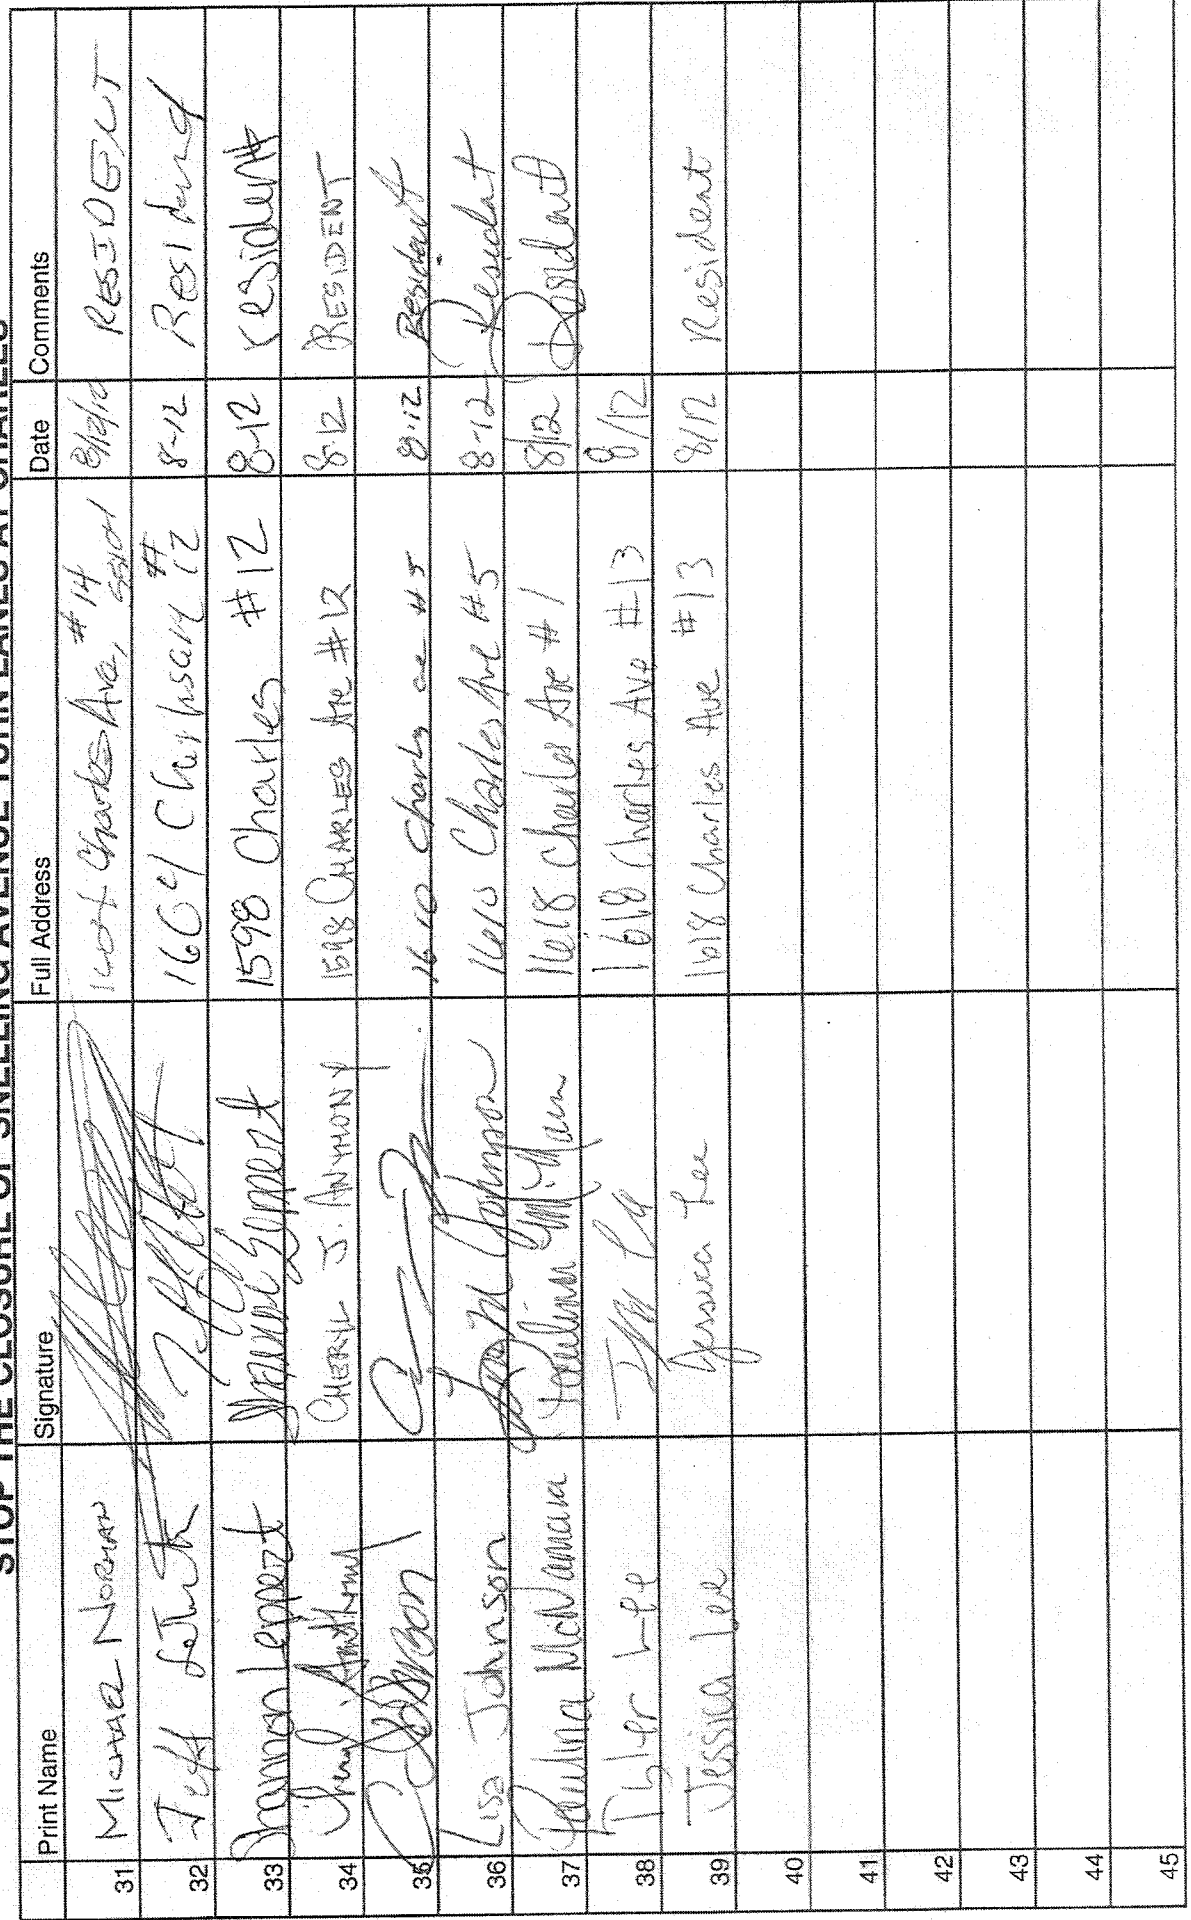 STOP THE CLOSURE OF SNELLING AVENUE TURN LANES AT CHARLES
Print Name Signature Full Address Date Comments
31 Michael Norman Charles Ave, #14 8/12/10 RESIDENT
32 Jeff 1604 Charles Ave #12 8-12 Resident
33 Shannon Leppert Shannon Leppert 1598 Charles #12 8-12 resident
34 Cheryl Anthony CHERYL J. ANTHONY 1598 CHARLES Ave #12 8-12 RESIDENT
35 1610 Charles ave #5 8-12 Resident
36 Lisa Johnson Lisa M Johnson 1610 Charles Ave #5 8-12 Resident
37 Paulina McNamara Paulina 1618 Charles Ave #1 8/12 Resident
38 Tyler Lee 1618 Charles Ave #13 8/12
39 Jessica Lee Jessica Lee 1618 Charles Ave #13 8/12 Resident
40
41
42
43
44
45